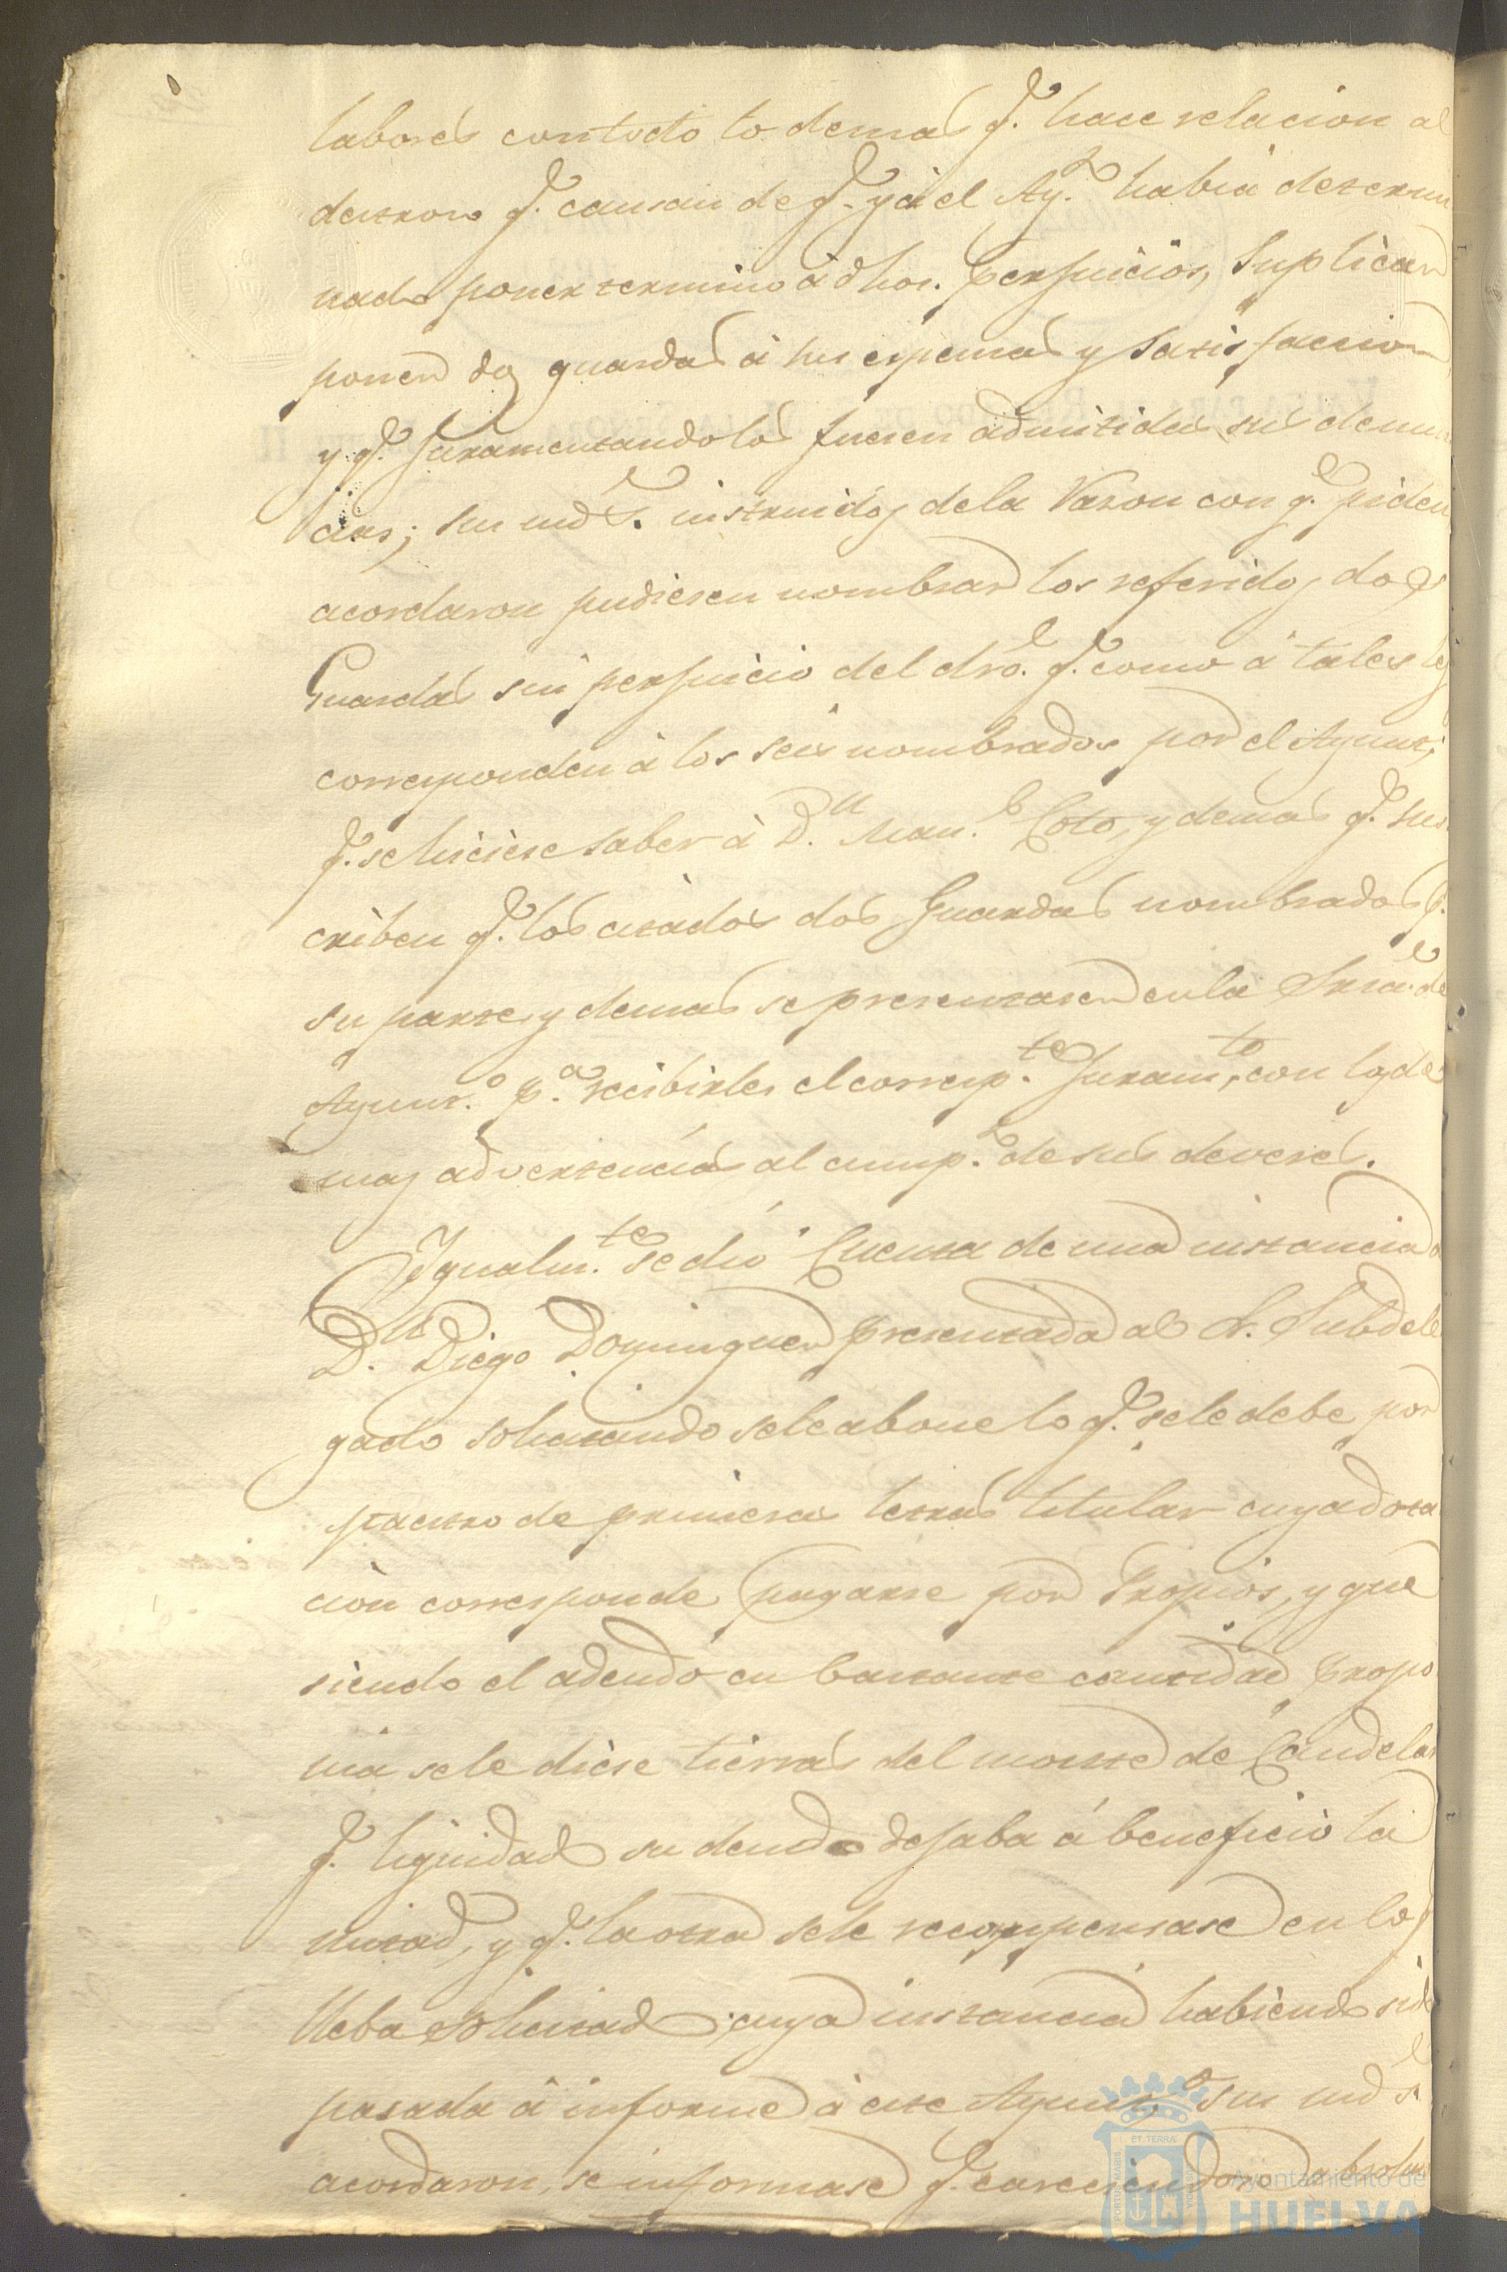 labores con todo lo demas q.e hace relacion al
destrozo q.e causan de q.e ya el Ay.to habia determi
nado poner termino á dhos. perjuicios, suplican
ponen dos guardas á sus espensas y satisfaccion
y q.e Juramentandolos fuesen admitidas sus denun
cias; sus mds. instruidos de la Razon con q.e piden
acordaron pudiesen nombrar los referidos dos
Guardas sin perjuicio del dro. q.e como á tales les
corresponden á los seis nombrados por el Ayunt.
q.e se hiciese saber á D.n Man.l Coto, y demas q.e sus
criben q.e los citados dos Guardas nombrados p.r
su parte y demas se presentasen en la Sria. de
Ayunt.o p.a recibirles el corresp.te Juram.to, con los de
mas advertencias al cump.to de sus deveres.
Igualm.te se dió Cuenta de una instancia de
D.n Diego Dominguez presentada al S.r Subdele
gado solicitando se le abone lo q.e se le debe por
maestro de primeras letras titular cuya dota
ción corresponde pagarse por Propios, y que
siendo el adeudo en bastante cantidad propo
nia se le diese tierras del monte de Candelar
q.e liquidad su deuda dejaba á beneficio la
mitad, y q.e la otra se le recompensase en los
lleba solicitad; cuya instancia habiendo sido
pasada á informe á este Ayunt.o sus mds.
acordaron se informase q.e careciendo absolu
Ayuntamiento de
HUELVA